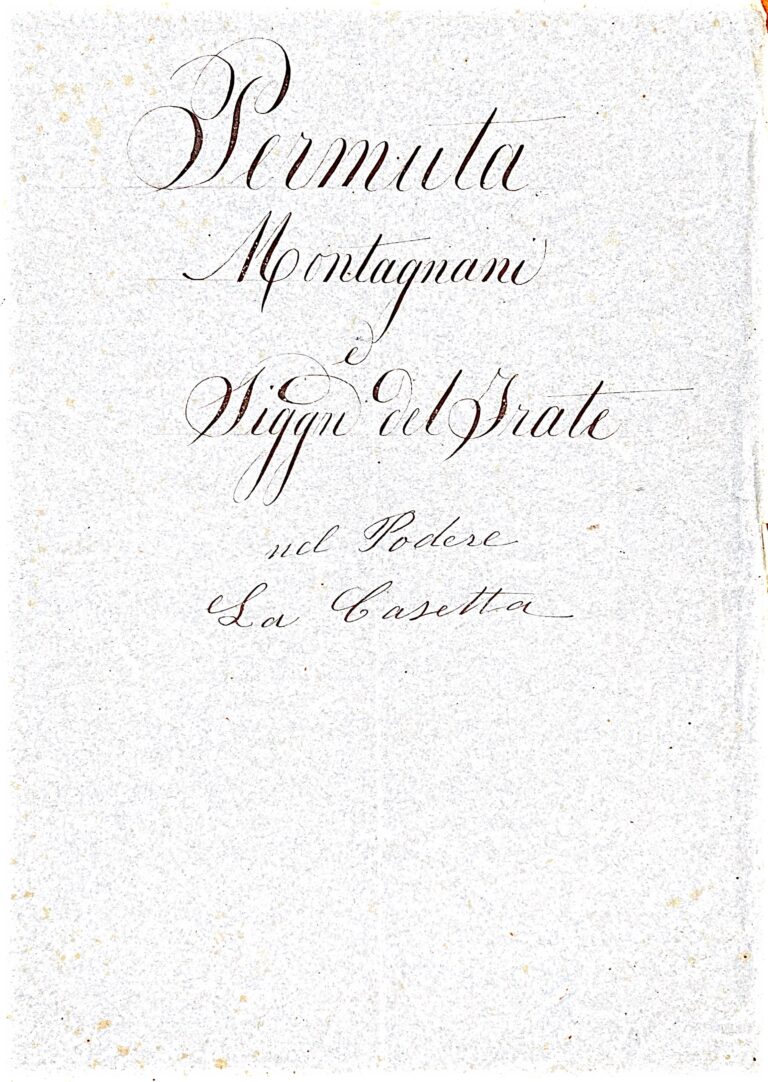 Permuta
Montagnani
e
Siggri del Frate
nel Podere
La Casetta